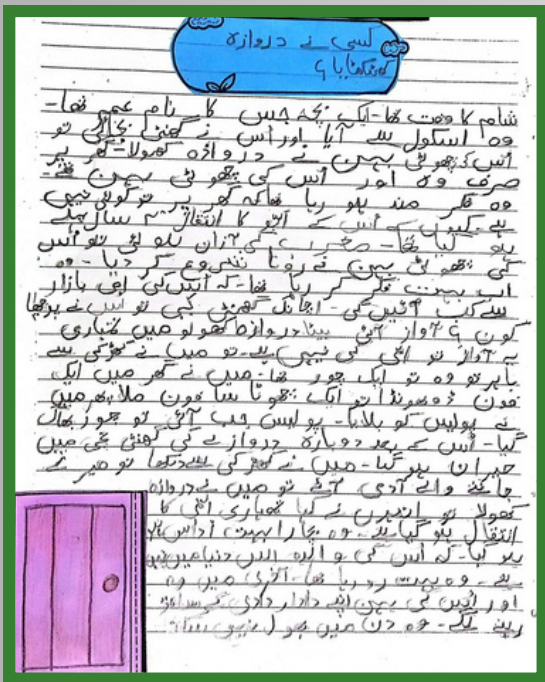 کسی نے دروازہ
کھٹکھٹایا؟
شام کا وقت تھا۔ ایک بچہ جس کا نام عمر تھا۔
وہ اسکول سے آیا اور اس نے گھنٹی بجائی تو
اس کی چھوٹی بہن نے دروازہ کھولا۔ گھر پر
صرف وہ اور اس کی چھوٹی بہن تھے۔
وہ فکر مند ہو رہا تھا کہ گھر پر تو کوئی نہیں
ہے کیوں کے اس کے کا انتقال سال پہلے
ہو گیا تھا۔ مغرب کی آزان ہو گئی تو اس
کی چھوٹی بہن نے رونا شروع کر دیا۔ وہ
اب بہت فکر کر رہا تھا۔ کہ اس کی امی بازار
سے کب آئیں گی۔ اچانک گھنٹی بجی تو اس نے پوچھا
کون؟ آواز آئی بیٹا دروازہ کھولو میں تمہاری
یہ آواز تو امی کی نہیں ہے۔ تو میں نے کھڑکی سے
باہر تو وہ تو ایک چور تھا۔ میں نے گھر میں ایک
فون ڈھونڈا تو ایک چھوٹا سا فون ملا پھر میں
نے پولیس کو بلایا۔ پولیس جب آئی تو چور بھاگ
گیا۔ اس کے بعد دوبارہ دروازے کی گھنٹی بجی میں
حیران ہو گیا۔ میں نے کھڑکی سے دیکھا تو میرے
جاننے والے آدمی آئے تو میں نے دروازہ
کھولا تو انہوں نے کہا تمہاری امی کا
انتقال ہو گیا ہے۔ وہ بچارا بہت اداس
ہو گیا کہ اس کی والدہ اس دنیا میں نہیں
ہے۔ وہ بہت رو رہا تھا۔ آخری میں وہ
اور اس کی بہن اپنے دادا دادی کے ساتھ
رہنے لگے۔ وہ دن میں بھول نہیں سکتا۔